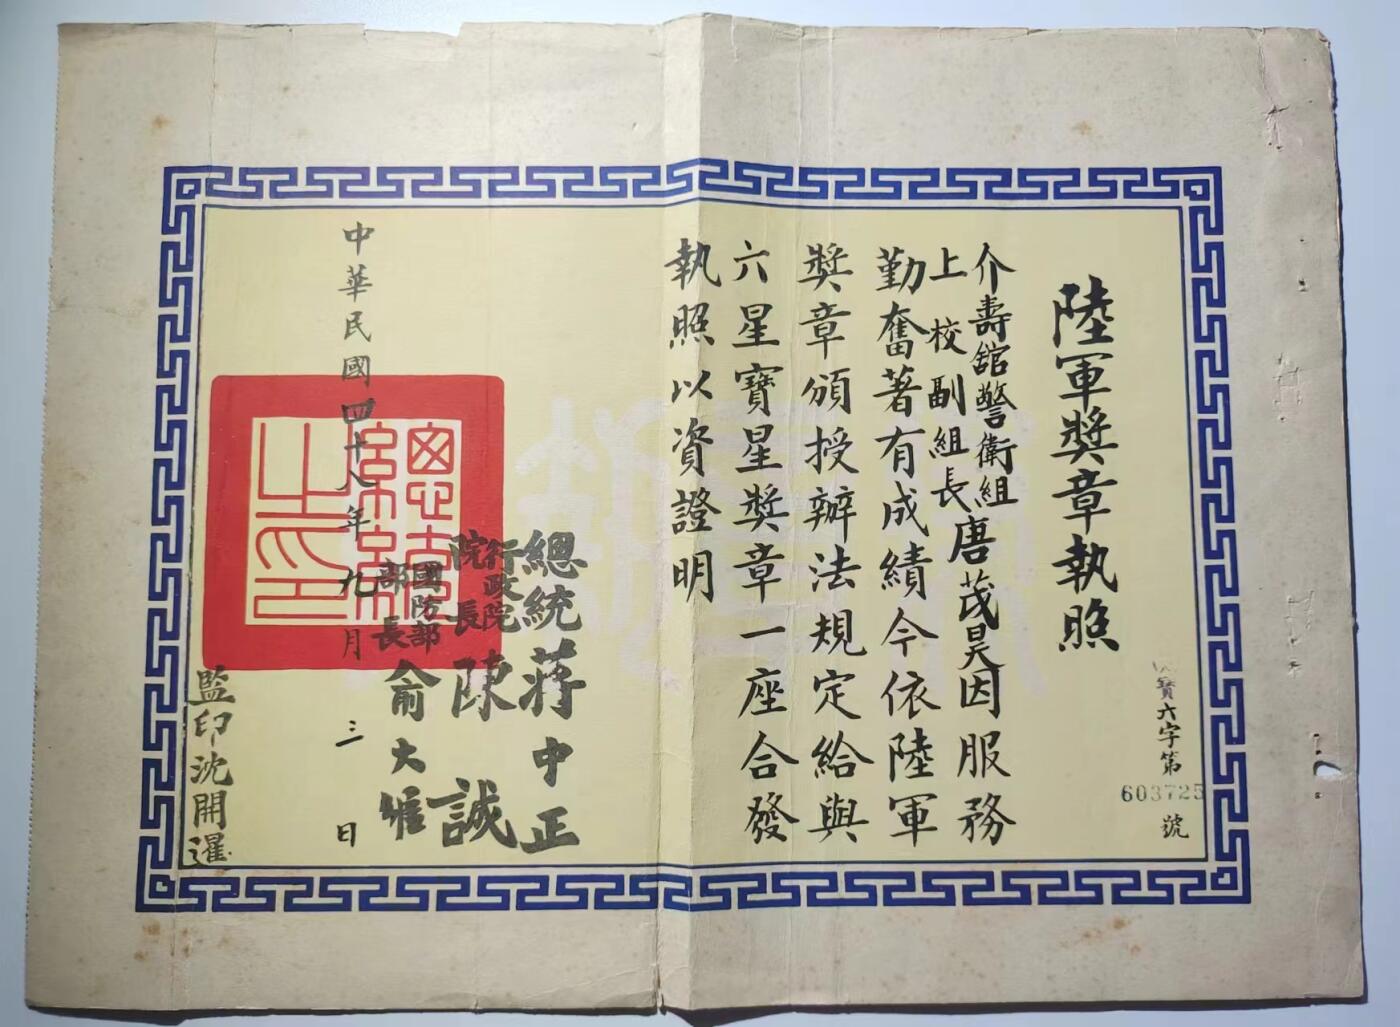 陸軍獎章執照
寶六字第
603725
號
介壽舘警衛組
上校副組長唐茂昊因服務
勤奮著有成績今依陸軍
獎章頒授辦法規定給與
六星寶星獎章一座合發
執照以資證明
總統蔣中正
行政院
院長陳誠
國防部
部長俞大維
中華民國四十八年九月三日
總統之印
監印沈開暹